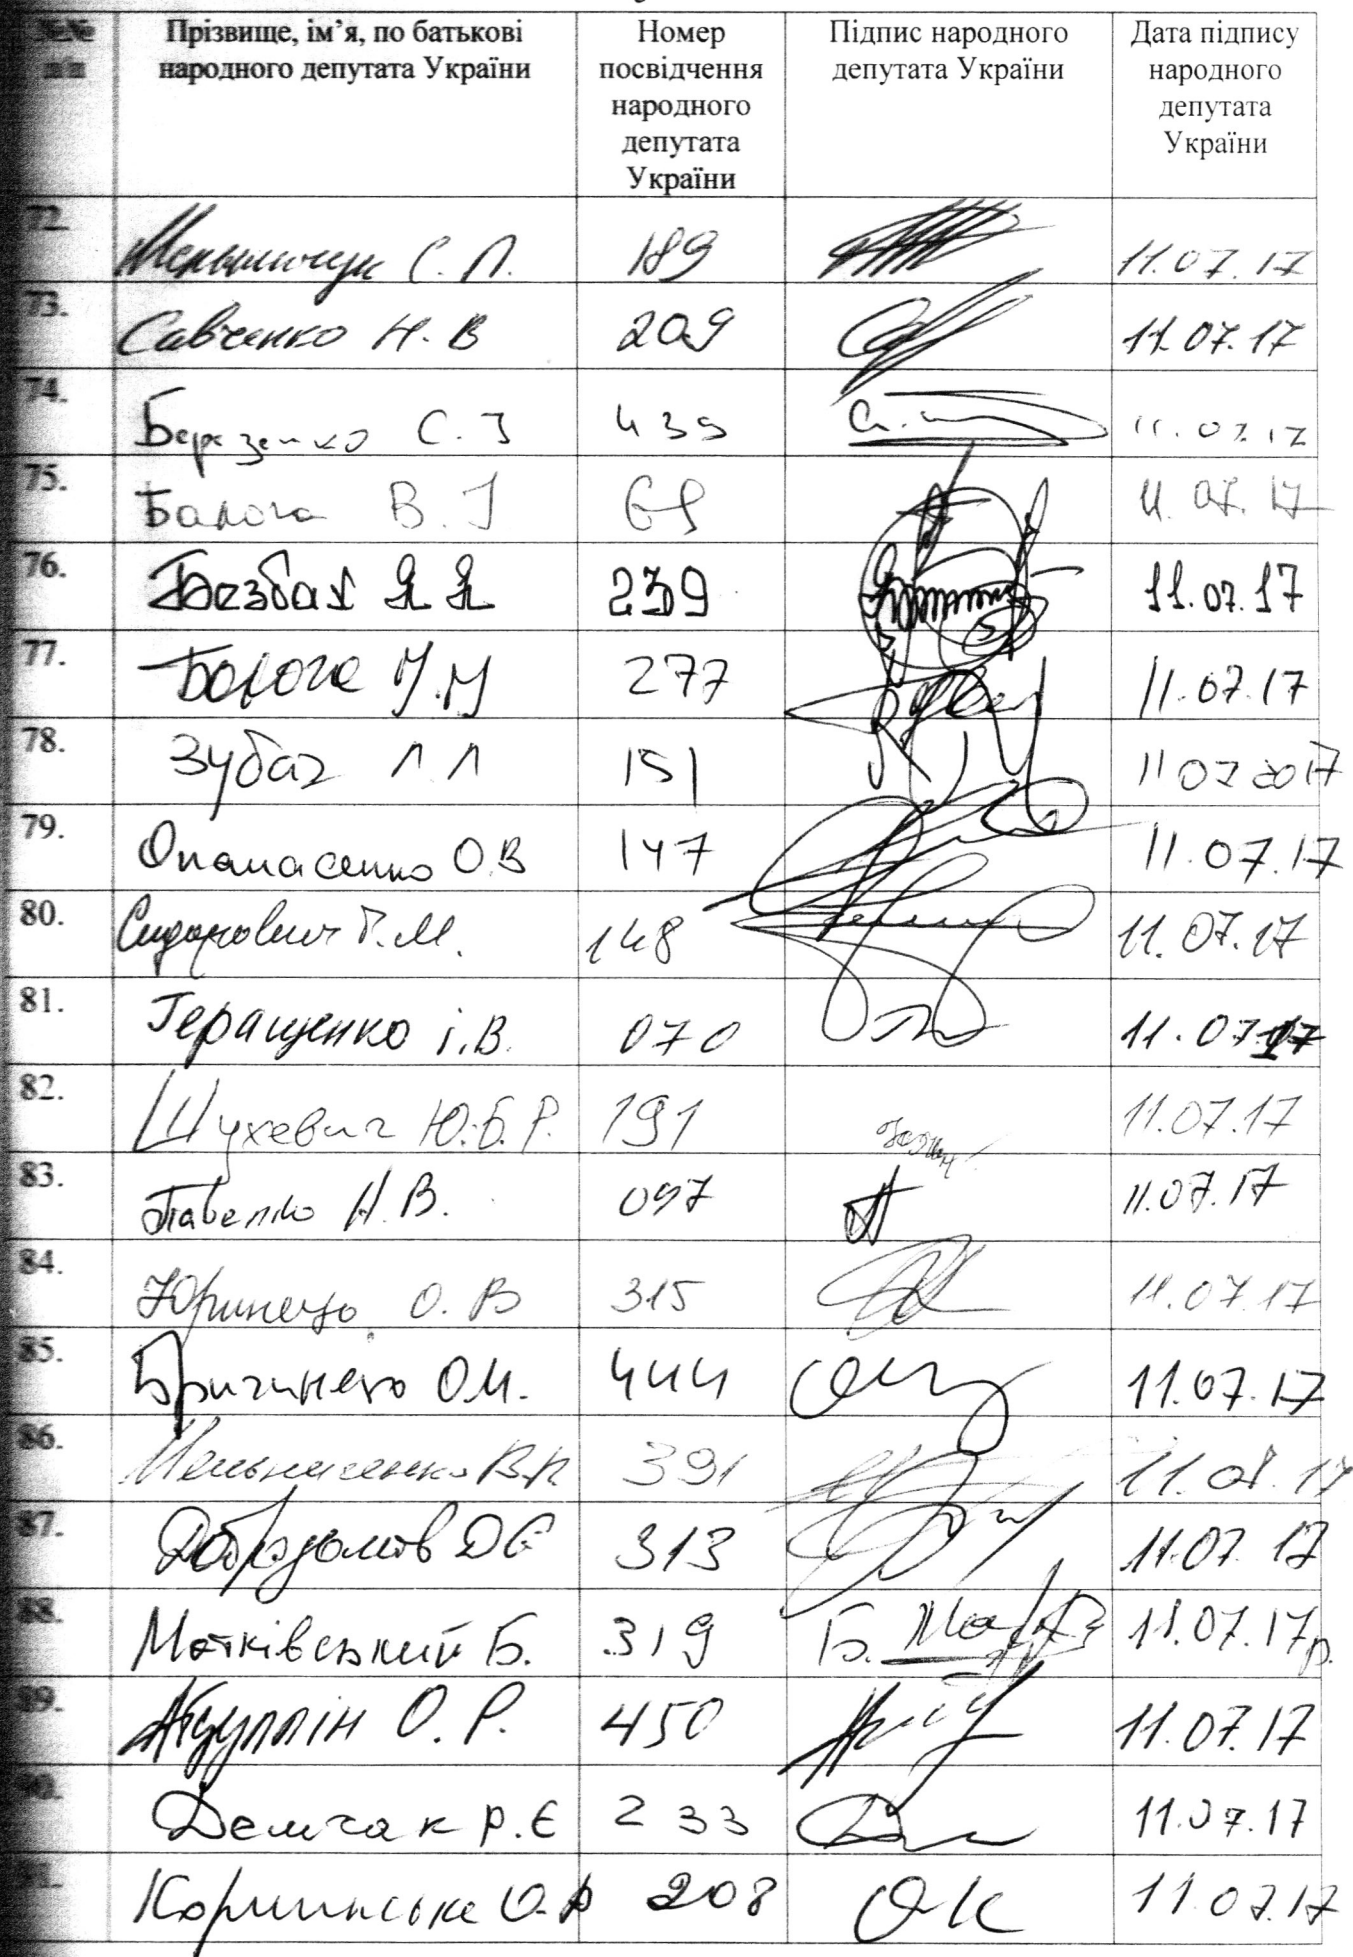 №№ Прізвище, ім’я, по батькові Номер Підпис народного Дата підпису
п/п народного депутата України посвідчення депутата України народного
народного депутата
депутата України
України
72. Мельничук С. П. 189 11.07.17
73. Савченко Н. В 209 11.07.17
74. Березенко С. І 439 11.07.17
75. Балога В. І 69 11.07.17
76. Безбах Я Я 239 11.07.17
77. Балога 277 11.07.17
78. Зубач Л Л 151 11 07 2017
79. Опанасенко О.В 147 11.07.17
80. Сидорович Р.М. 148 11.07.17
81. Геращенко і.В. 070 11.07.17
82. Шухевич Ю.-Б.Р. 191 11.07.17
83. Павленко 097 11.07.17
84. Юринець О. В 315 11.07.17
85. Бригинець О.М. 444 11.07.17
86. Мельниченко В.В. 391 11.07.17
87. Добродомов Д Є 313 11.07.17
88. Матківський Б. 319 Б. 11.07.17р.
89. Абдуллін О. Р. 450 11.07.17
90. Демчак Р.Є 233 11.07.17
91. 208 ОК 11.07.17